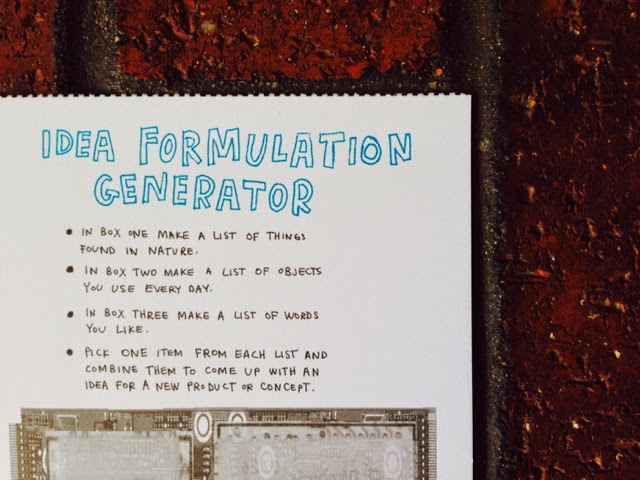 IDEA FORMULATION
GENERATOR
• IN BOX ONE MAKE A LIST OF THINGS
FOUND IN NATURE.
• IN BOX TWO MAKE A LIST OF OBJECTS
YOU USE EVERY DAY.
• IN BOX THREE MAKE A LIST OF WORDS
YOU LIKE.
• PICK ONE ITEM FROM EACH LIST AND
COMBINE THEM TO COME UP WITH AN
IDEA FOR A NEW PRODUCT OR CONCEPT.